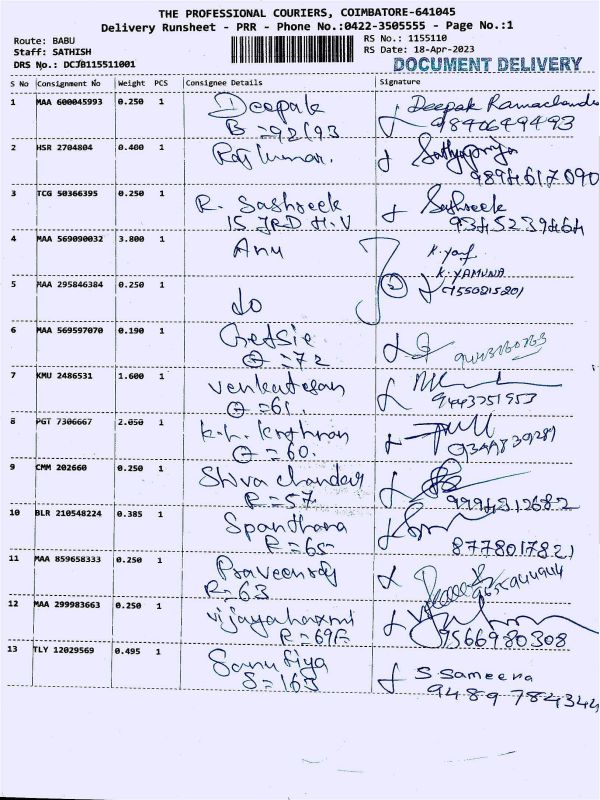 THE PROFESSIONAL COURIERS, COIMBATORE-641045
Delivery Runsheet - PRR - Phone No.:0422-3505555 - Page No.:1
Route: BABU
Staff: SATHISH
DRS No.: DCJB115511001
RS No.: 1155110
RS Date: 18-Apr-2023
DOCUMENT DELIVERY
S No Consignment No Weight PCS Consignee Details Signature
1 MAA 600045993 0.250 1 Deepak
B=92/93
2 HSR 2704804 0.400 1 Raj Kumar.
3 TCG 50366395 0.250 1 R. Sashreek
15 JRD H.V
Sashreek
9345239464
4 MAA 569090032 3.800 1 Anu
K. YAMUNA
7550215201
5 MAA 295846384 0.250 1 do
6 MAA 569597070 0.190 1
=72
7 KMU 2486531 1.600 1 Venkatesan
=61
9443751953
8 PGT 7306667 2.050 1
=60.
9 CMM 202660 0.250 1 Shiva Chandar
R=57
9994312682
10 BLR 210548224 0.385 1 Spanthana
R=65
8778017821
11 MAA 859658333 0.250 1 Praveenraj
R=63
12 MAA 299983663 0.250 1 Vijayalaxmi
R=69F
9566980308
13 TLY 12029569 0.495 1
S=163
S. Sameena
9489784344